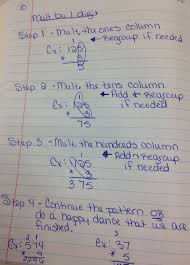 10
Mult by 1 digit
Step 1 - Mult. the ones column
& Regroup if needed
Ex: 125
* 3
5
Step 2 - Mult. the tens column
Add & Regroup
if needed
Ex: 125
* 3
75
Step 3 - Mult. the hundreds column
Add & Regroup
if needed
Ex: 125
* 3
375
Step 4 - Continue the pattern OR
do a happy dance that we are
finished.
Ex: 574 Ex: 37
* 4 * 5
2296